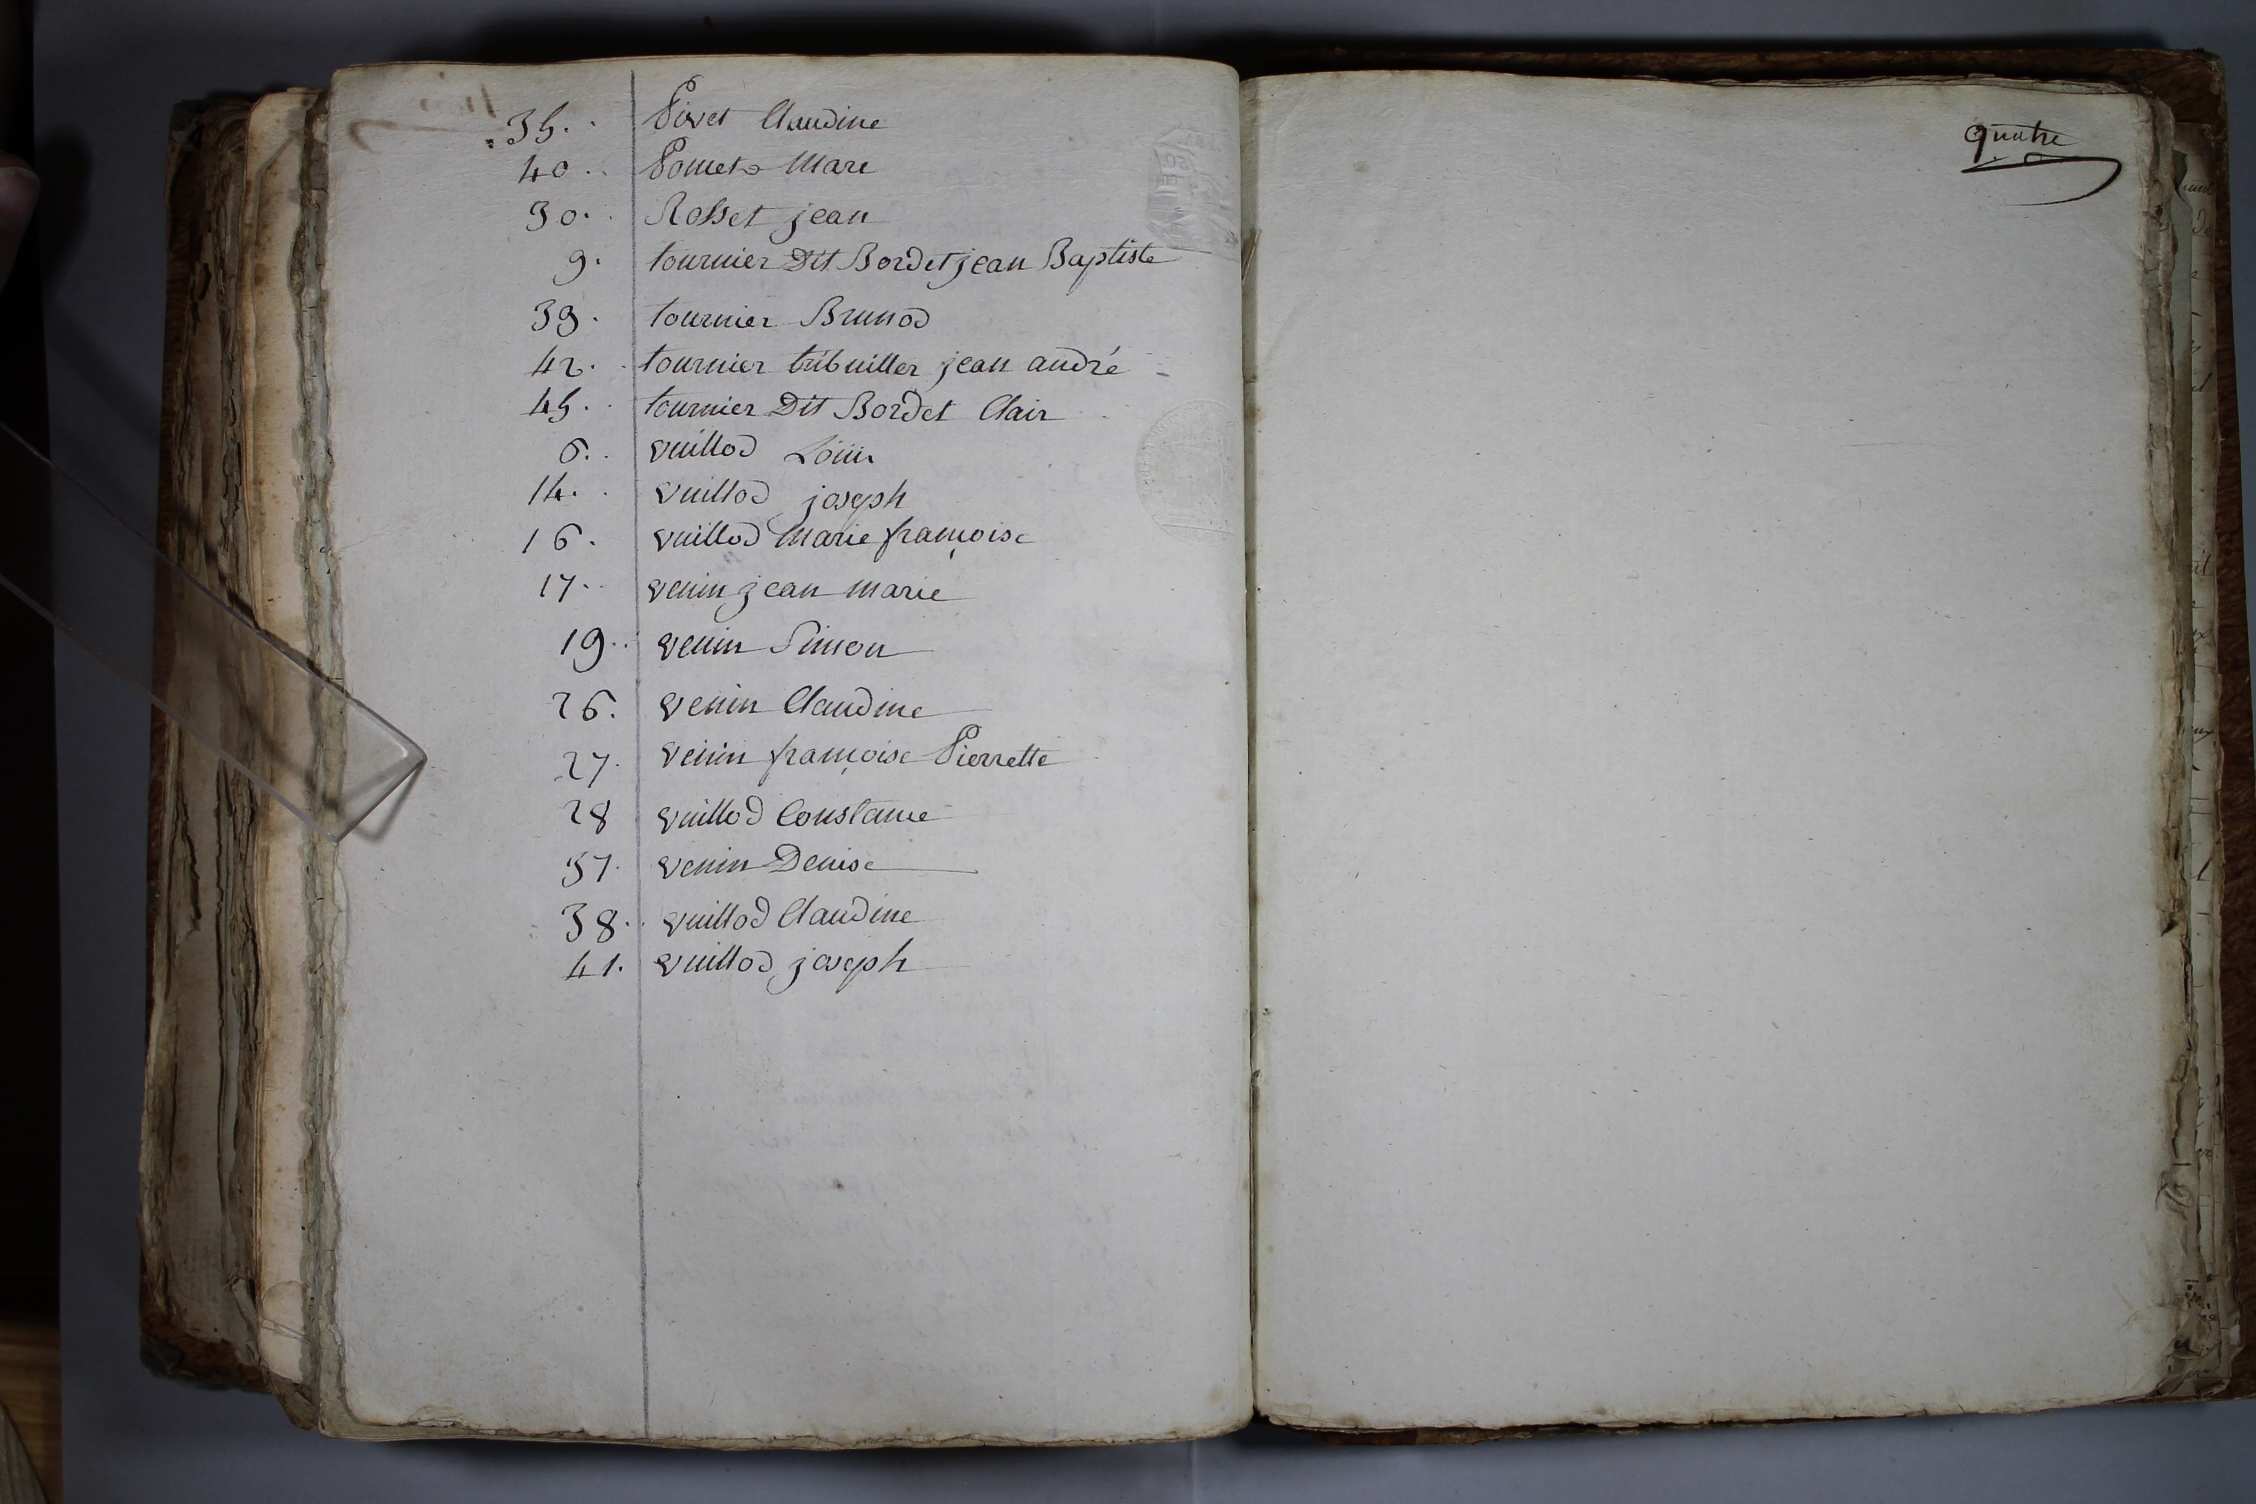 35. Pivet Claudine
40. Pomet Marc
30. Rosset jean
9. tournier Dit Bordet jean Baptiste
39. tournier Brunod
42. tournier tribuiller jean andré
45. tournier Dit Bordet Clair
6. vuillod Louis
14. vuillod joseph
16. vuillod Marie françoise
17. venin jean marie
19. venin Simon
26. venin Claudine
27. venin françoise Pierrette
28 vuillod Constance
37. venin Denise
38. vuillod Claudine
41. vuillod joseph
quatre